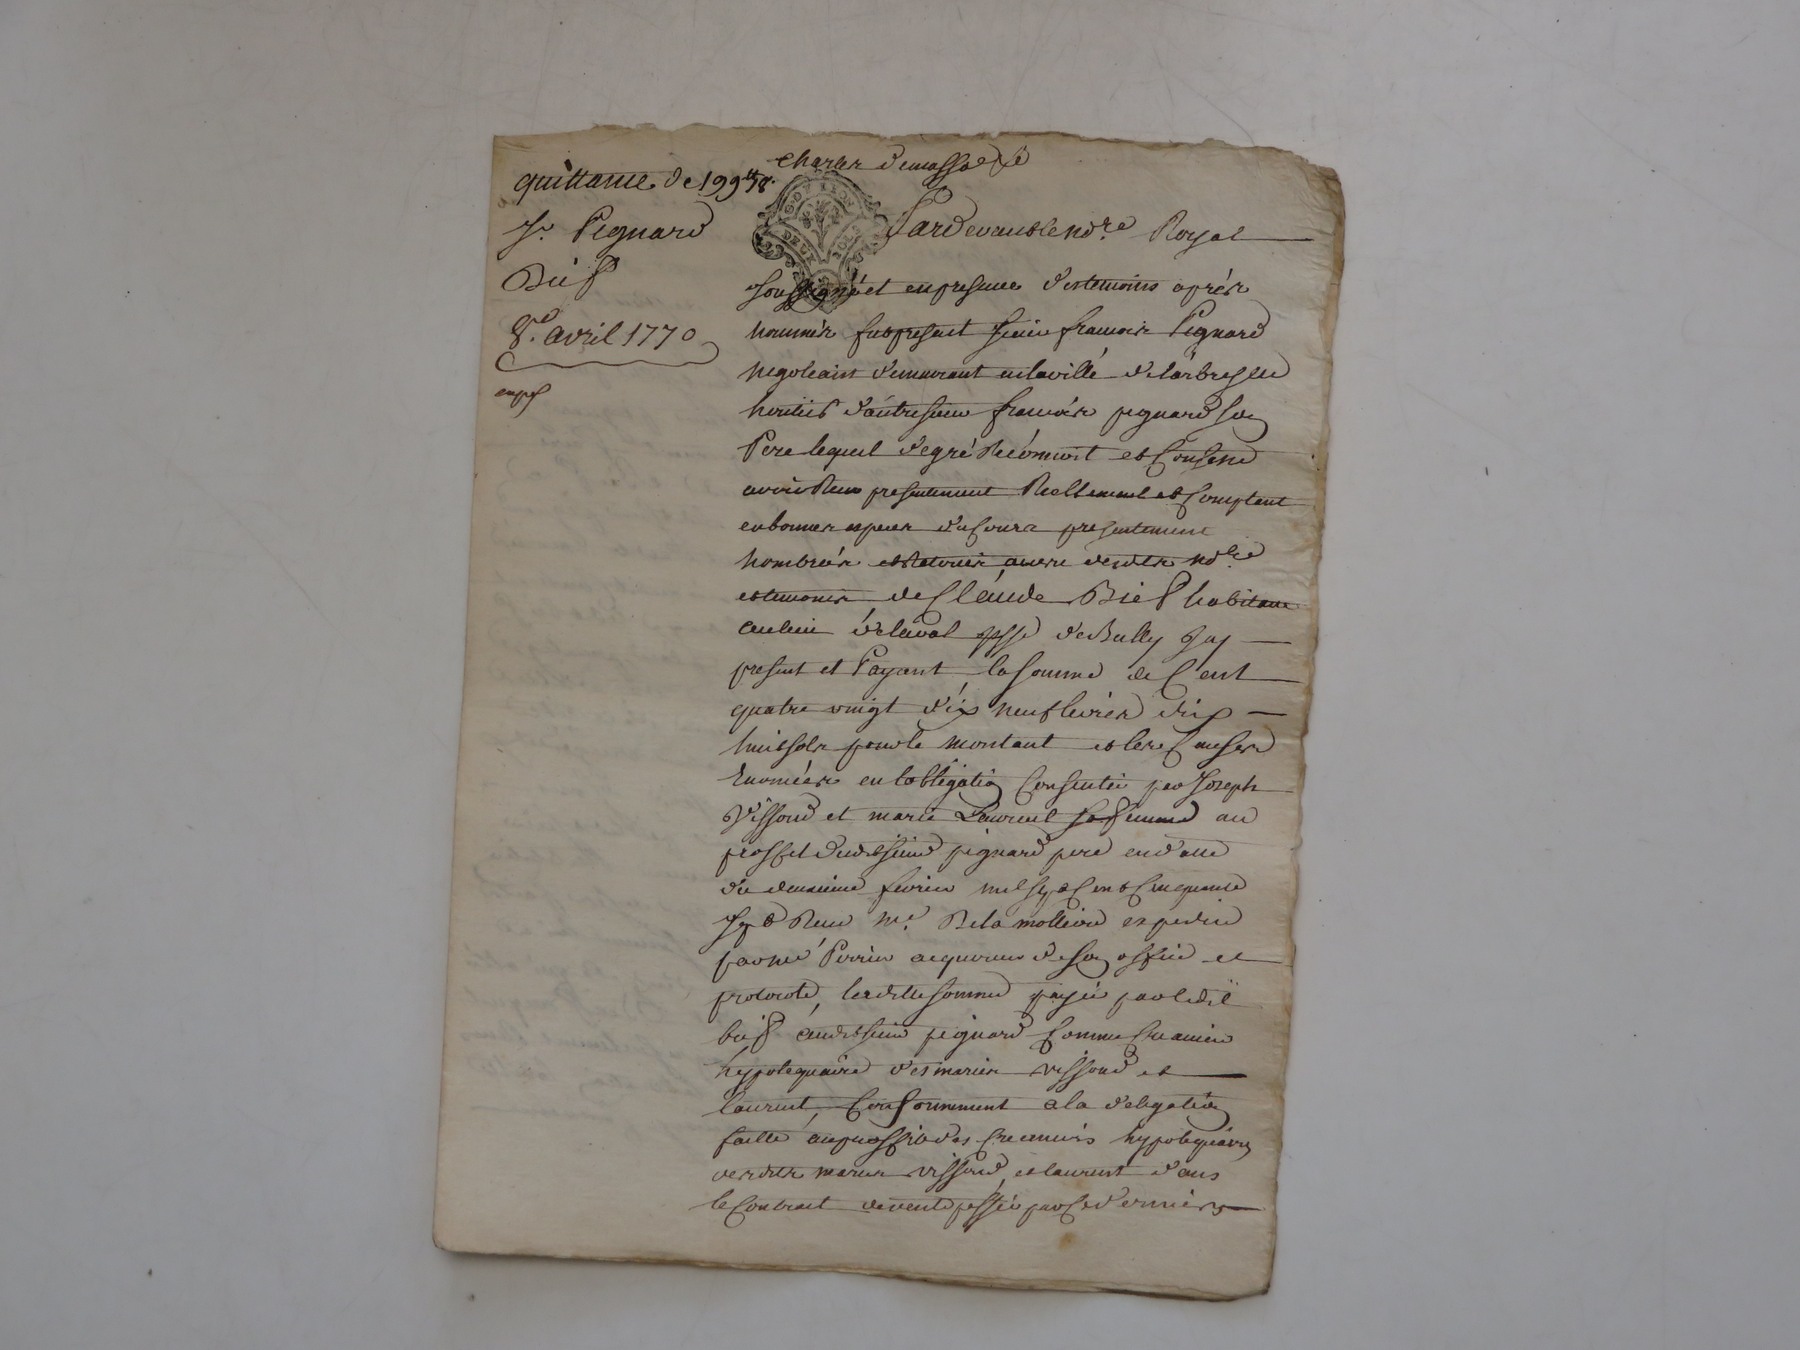 quittance de 199# 18s.
Sr. Pignard
Bief
8e. avril 1770
exp
Charles
Pardevant le nore. Royal
soussigné et en presence des temoins aprés
nommés fut present sieur francois Pignard
negotiant demeurant en la ville de larbresle
heritier d'autre sieur francois pignard son
Pere lequel de gré Reconnoit et Confesse
avoir Reçu presentement Reellement et Comptant
en bonnes especes du Cours presentement
nombrées et Retirées au vu desdits nore
et temoins de Claude Bief habitant
au lieu de laval psse de Bully Icy
present et Payant la somme de Cent
quatre vingt dix neuf livres dix
huit sols pour le montant et les Causes
Enoncées en lobligation Consentie par Joseph
Vissoud et marie Laurent sa femme au
proffit dudit sieur pignard pere en datte
du deuxieme fevrier mil sept Cent Cinquante
sept Reçu me. Delamolliere expedié
par me Perrin acquereur de son office et
protocole, laditte somme payée par ledit
bief audit sieur pignard Comme Creancier
hypotequaire des mariés vissoud et
laurent, Conformement a la delegation
faitte au proffit des Creanciers hypotequaires
desdits mariés vissoud et laurent dans
le Contrat de vente passée par Ces derniers